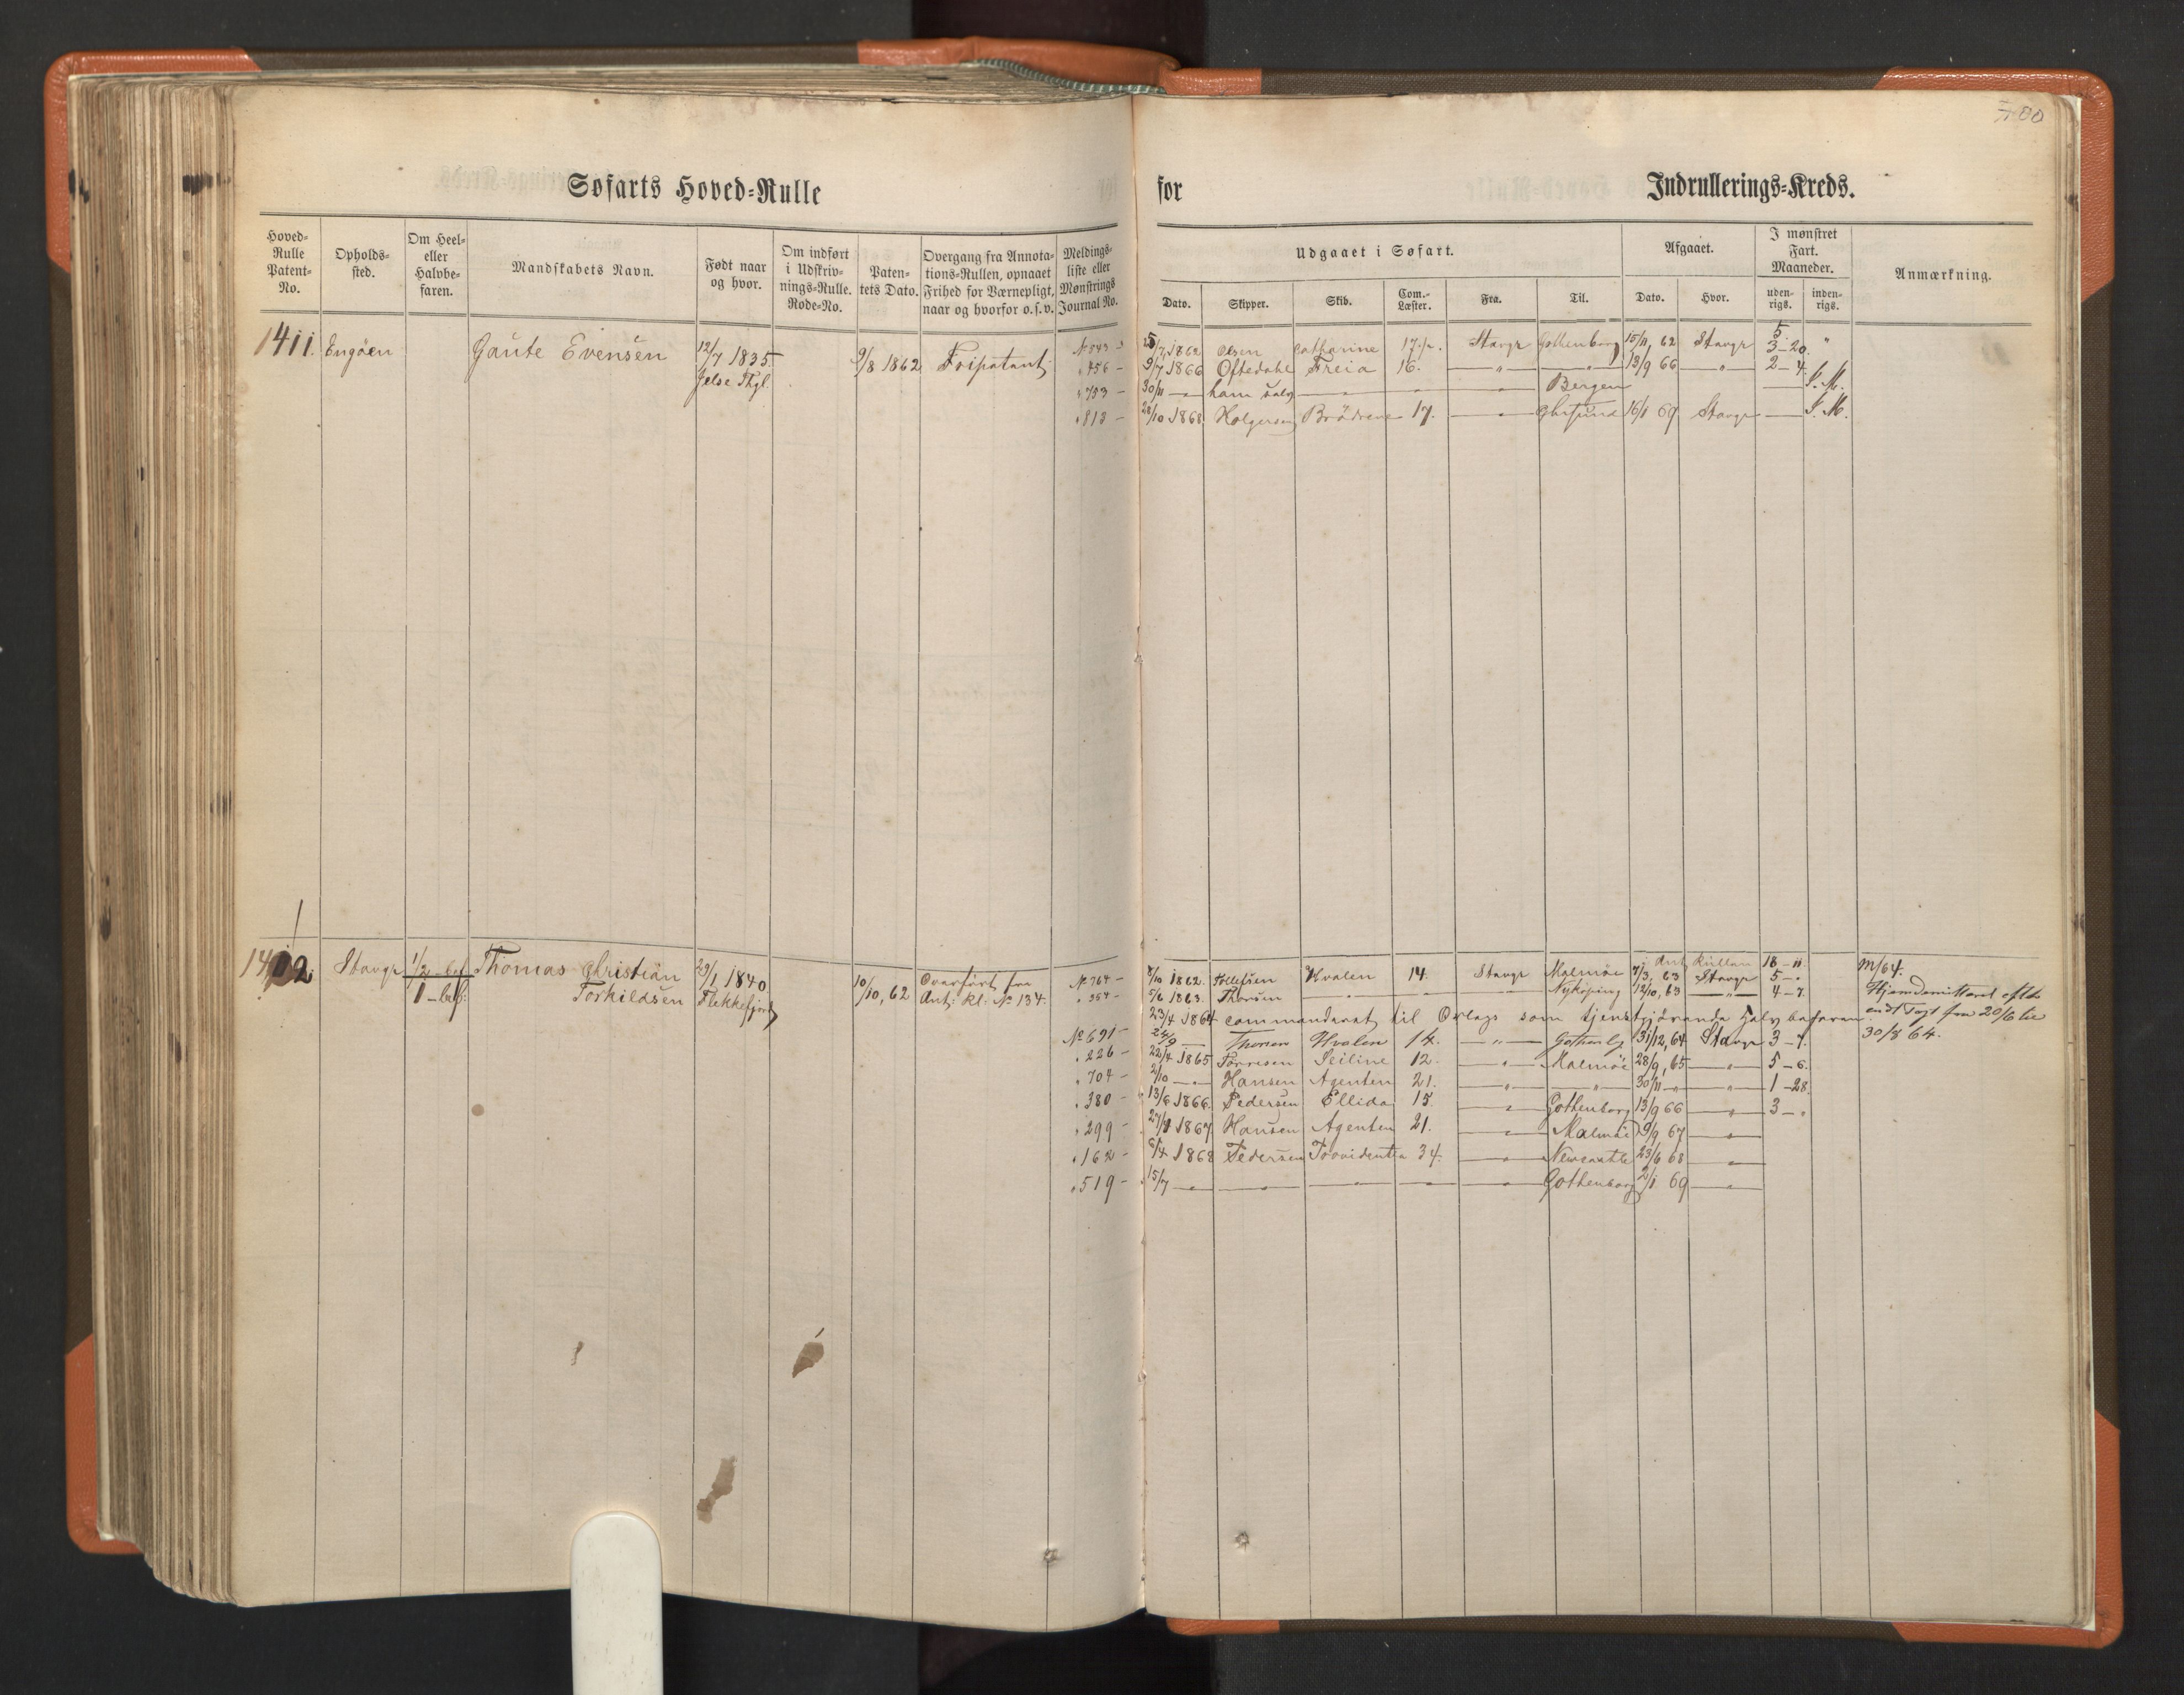 Søfarts Hoved-Rulle for Indrullerings-Kreds.
Hoved-Rulle Patent-No. Opholds-sted. Om Heel- eller Halvbe-faren. Mandskabets Navn. Født naar og hvor. Om indført i Udskriv-nings-Rulle. Rode-No. Paten-tets Dato. Overgang fra Annota-tions-Rullen, opnaaet Frihed for Værnepligt, naar og hvorfor o.s.v. Meldings-liste eller Mønstrings Journal No.
Udgaaet i Søfart. Afgaaet. I mønstret Fart. Maaneder. Anmærkning.
Dato. Skipper. Skib. Com.-Læster. Fra. Til. Dato. Hvor. uden-rigs. inden-rigs.
1411. Engöen Gaute Evensen 12/7 1835 9/8 1862 Fripatent № 843 - 25/7 1862 Olsen Catharine 17 Stavgr Gothenborg 15/11, 62 Stavgr 5
Jelse Thgl. " 456 - 9/7 1866 Oftedahl Freia 16. — " — — " — 13/9 66 — " — 2 - 4.
3 - 20. "
" 733 - 30/11 — ham selv — — Bergen — S. M.
" 813 - 28/10 1868 Holgersen Brödrene 17. — " — 16/1 69 Stavgr — S. M.
1412. Stavgr 1/2 - bef Thomas Christian 29/1 1840 10/10, 62 Overført fra № 764 - 8/10 1862. Tollefsen Hvalen 14. Stavgr Malmöe 7/3, 63 Stavgr 5 - "
Ant. Rullen 18 - 11. M/64.
1 - bef: Torkildsen Flekkefjord Ant: kl: № 134. " 354 - 5/6 1863. Thorsen — " — — " — — " — Nyköping 12/10, 63 — " — 4 - 7. Hjemdemitteret efter
23/4 1864 commanderet til Orlogs som tjenstgjörende Halvbefaren endt Togt fra 20/6 til
№ 691 - 24/9 — Thorsen Hvalen 14. — " — 31/12, 64 Stavgr 3 - 7. 30/8 64.
" 226 - 22/4 1865 Torresen Seiline 12. — " — Malmöe 28/9, 65 — " — 5 - 6.
" 704 - 2/10 — " — Hansen Agenten 21. — " — — " — 30/11 - " — " — 1 - 28.
" 380 - 13/6 1866. Pedersen Ellida 15. — " — Gothenborg 13/9 66 — " — 3 - "
" 299 - 1867 Hansen Agenten 21. — " — Malmöe 9/9 67 — " —
" 162 - 6/4 1868 Pedersen Providentia 34. — " — Newcastle 23/6 68 — " —
" 519 - 15/7 — " — — " — — " — — " — — " — Gothenborg 2/1 69 — " —